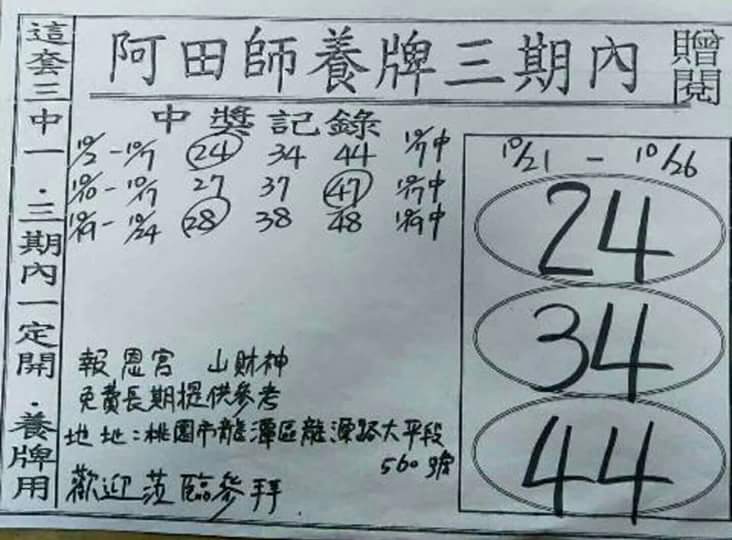 阿田師養牌三期內
贈閱
這套三中一·三期內一定開·養牌用
中獎記錄
10/2 - 10/7 24 34 44 10/7中
10/10 - 10/17 27 37 47 10/17中
10/19 - 10/24 28 38 48 10/19中
10/21 - 10/26
24
34
44
報恩宮 山財神
免費長期提供參考
地址:桃園市龍潭區龍源路大平段
560號
歡迎蒞臨參拜